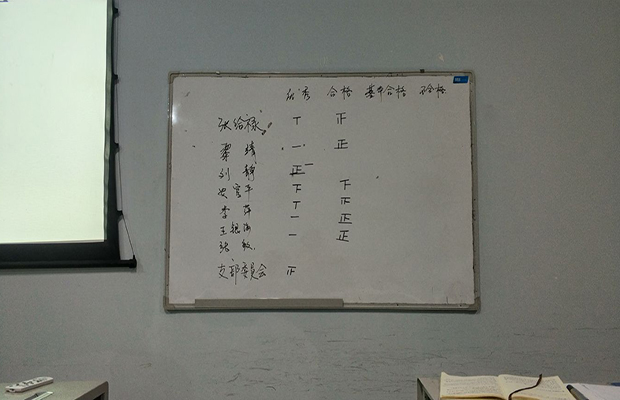 优秀 合格 基本合格 不合格
张给禄 丅 正
靖 一 正
刘静 正一
安官平 下 下
李萍 丅 正
王银海 一 正
张敏 一 正
支部委员会 正